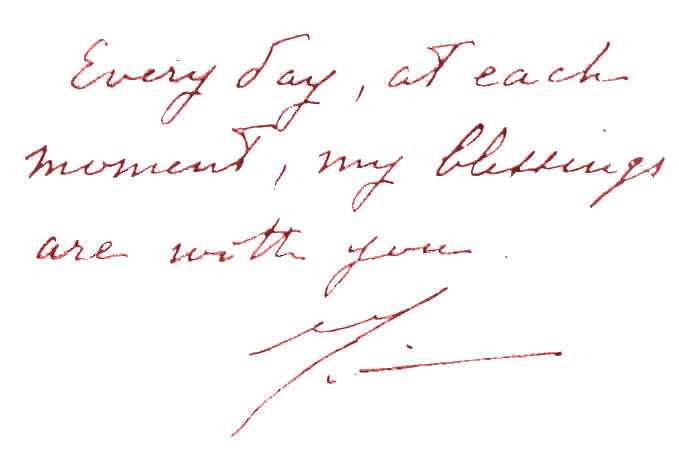 Every day, at each
moment, my blessings
are with you.